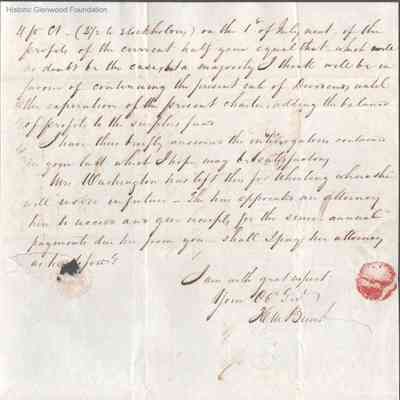 Historic Glenwood Foundation
4 pr Ct - (3/2 to stockholders) on the 1st of July next. if the
profits of the current half year equal that which will
no doubt be the case, a majority I think will be in
favour of continuing the present rate of Dividends until
the expiration of the present charter, adding the balance
of profits to the surplus fund
I have thus briefly answered the interrogatories contained
in your last which I hope may be satisfactory
Mrs Washington has left this for Wheeling where she
will reside in future - She has appointed an attorney
here to receive and give receipts for the semi annual
payments due her from you - shall I pay her attorney
as heretofore?
I am with great respect
Your Ob Svt